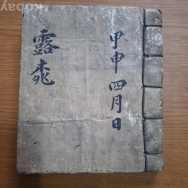 甲申 四月日
露
kobay